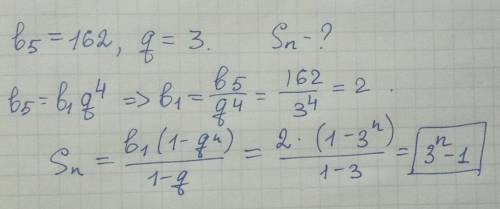 b₅ = 162, q = 3. Sₙ - ?
b₅ = b₁q⁴ => b₁ = b₅/q⁴ = 162/3⁴ = 2.
Sₙ = b₁(1-qⁿ)/1-q = 2·(1-3ⁿ)/1-3 = 3ⁿ-1